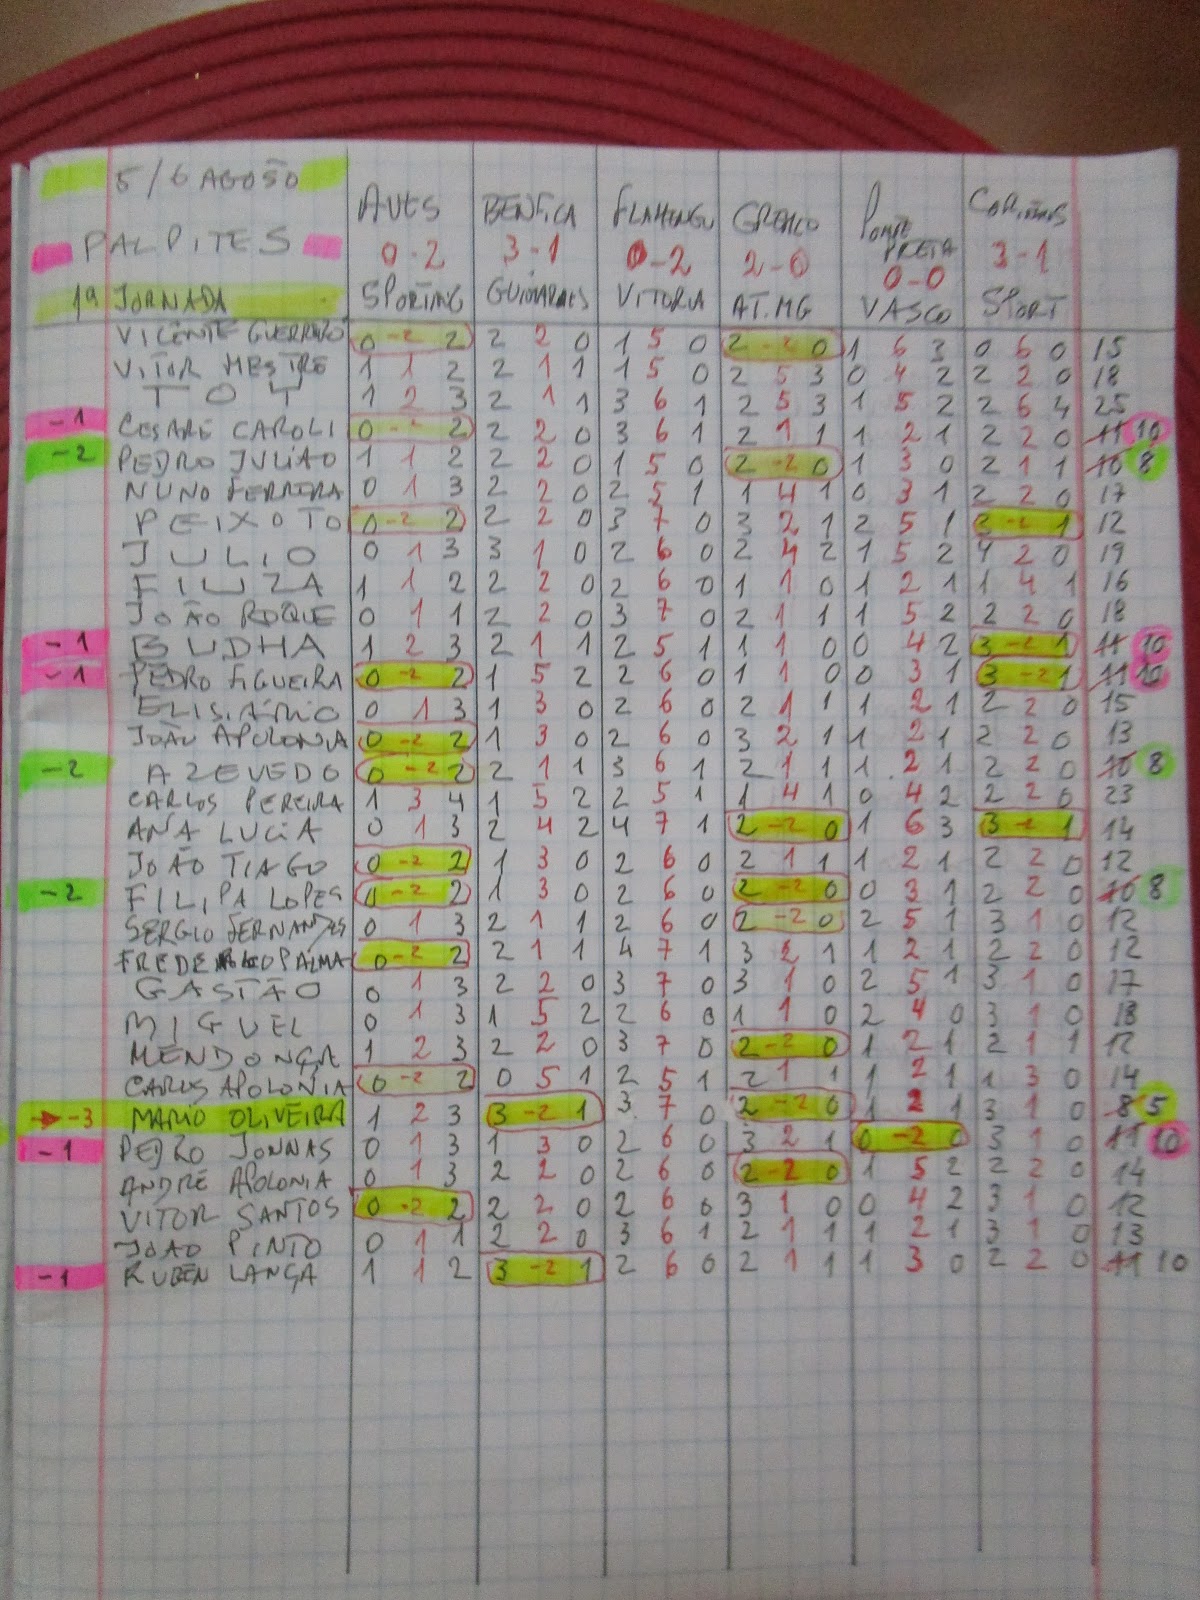 5/6 AGOSTO
PALPITES
1ª JORNADA
AVES 0-2 SPORTING
BENFICA 3-1 GUIMARAES
FLAMENGU 0-2 VITORIA
GREMIO 2-0 AT.MG
PONTE PRETA 0-0 VASCO
3-1 SPORT
VICENTE 0 -2 2 2 2 0 1 5 0 2 -2 0 1 6 3 0 6 0 15
VITOR MESTRE 1 1 2 2 1 1 1 5 0 2 5 3 0 4 2 2 2 0 18
TOY 1 2 3 2 1 1 3 6 1 2 5 3 1 5 2 2 6 4 25
-1 CESARE CAROLI 0 -2 2 2 2 0 3 6 1 2 1 1 1 2 1 2 2 0 11 10
-2 PEDRO JULIAO 1 1 2 2 2 0 1 5 0 2 -2 0 1 3 0 2 1 1 10 8
NUNO FERREIRA 0 1 3 2 2 0 2 5 1 1 4 1 0 3 1 2 2 0 17
PEIXOTO 0 -2 2 2 2 0 3 7 0 3 2 1 2 5 1 3 -2 1 12
JULIO 0 1 3 3 1 0 2 6 0 2 4 2 1 5 2 4 2 0 19
FIUZA 1 1 2 2 2 0 2 6 0 1 1 0 1 2 1 1 4 1 16
JOÃO ROQUE 0 1 1 2 2 0 3 7 0 2 1 1 1 5 2 2 2 0 18
-1 BUDHA 1 2 3 2 1 1 2 5 1 1 1 0 0 4 2 3 -2 1 11 10
-1 PEDRO FIGUEIRA 0 -2 2 1 5 2 2 6 0 1 1 0 0 3 1 3 -2 1 11 10
ELISIÁRIO 0 1 3 1 3 0 2 6 0 2 1 1 1 2 1 2 2 0 15
JOÃO APOLONIA 0 -2 2 1 3 0 2 6 0 3 2 1 1 2 1 2 2 0 13
-2 AZEVEDO 0 -2 2 2 1 1 3 6 1 2 1 1 1 2 1 2 2 0 10 8
CARLOS PEREIRA 1 3 4 1 5 2 2 5 1 1 4 1 0 4 2 2 2 0 23
ANA LUCIA 0 1 3 2 4 2 4 7 1 2 -2 0 1 6 3 3 -2 1 14
JOÃO TIAGO 0 -2 2 1 3 0 2 6 0 2 1 1 1 2 1 2 2 0 12
-2 FILIPA LOPES 0 -2 2 1 3 0 2 6 0 2 -2 0 0 3 1 2 2 0 10 8
SERGIO FERNANDES 0 1 3 2 1 1 2 6 0 2 -2 0 2 5 1 3 1 0 12
PALMA 0 -2 2 2 1 1 4 7 1 3 2 1 1 2 1 2 2 0 12
GASTÃO 0 1 3 2 2 0 3 7 0 3 1 0 2 5 1 3 1 0 17
MIGUEL 0 1 3 1 5 2 2 6 0 1 1 0 2 4 0 3 1 0 18
MENDONÇA 1 2 3 2 2 0 3 7 0 2 -2 0 1 2 1 2 1 1 12
CARLOS APOLONIA 0 -2 2 0 5 1 2 5 1 2 1 1 1 2 1 1 3 0 14
-3 MARIO OLIVEIRA 1 2 3 3 -2 1 3 7 0 2 -2 0 1 2 1 3 1 0 8 5
-1 PEDRO JONNAS 0 1 3 1 3 0 2 6 0 3 2 1 0 -2 0 3 1 0 11 10
ANDRÉ APOLONIA 0 1 3 2 2 0 2 6 0 2 -2 0 1 5 2 2 2 0 14
VITOR SANTOS 0 -2 2 2 2 0 2 6 0 3 1 0 0 4 2 3 1 0 12
JOÃO PINTO 0 1 1 2 2 0 3 6 1 2 1 1 1 2 1 3 1 0 13
-1 RUBEN LANÇA 1 1 2 3 -2 1 2 6 0 2 1 1 1 3 0 2 2 0 11 10